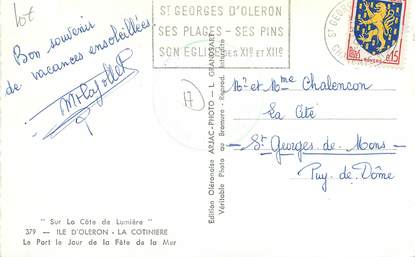 lot
Bon souvenir
de vacances ensoleillées
17
ST GEORGES D'OLERON
SES PLAGES - SES PINS
SON EGLISE DES XIe ET XIIe
ST GEORGES
0,15
Edition Oléronaise ARJAC-PHOTO - L. GRANDSART
Véritable Photo au Bromure - Reprod. Interdite
Mr et Mme Chalencon
La Cité
St Georges de Mons
Puy-de-Dôme
" Sur La Côte de Lumière "
379 — ILE D'OLERON - LA COTINIERE
Le Port le Jour de la Fête de la Mer